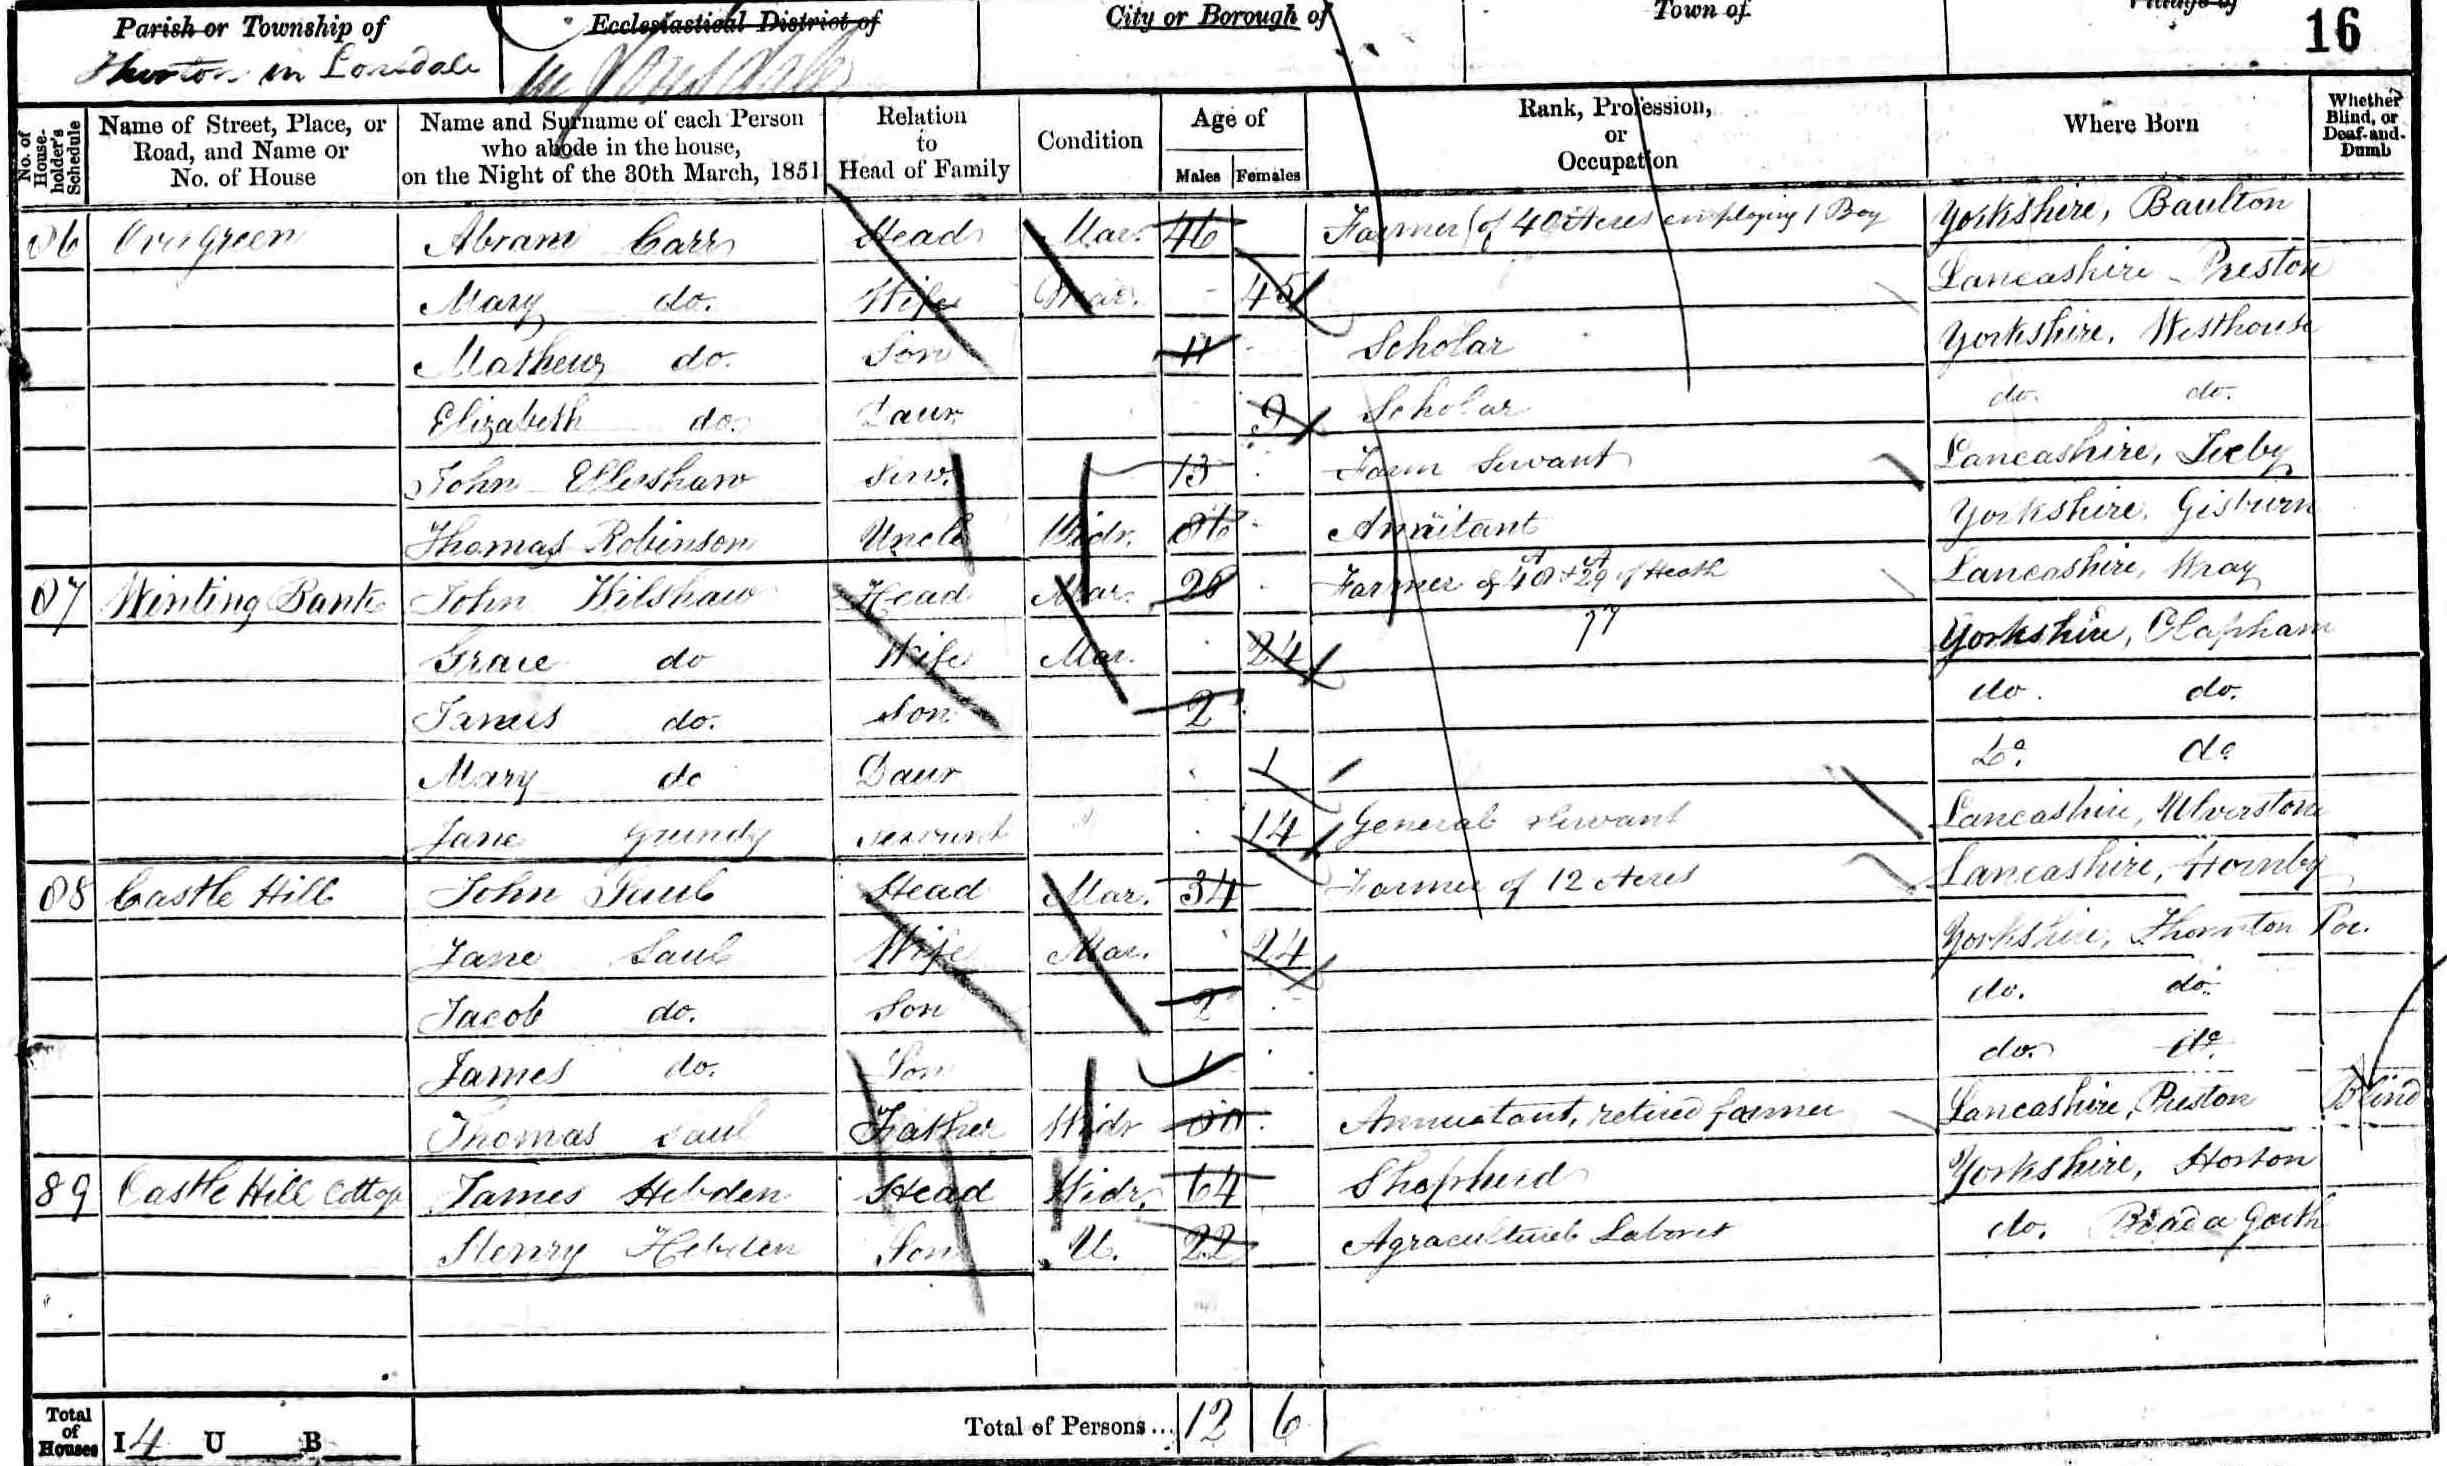 Parish or Township of
Ecclesiastical District of
City or Borough of
Town of
Village of
16
Thornton in Lonsdale
in Lonsdale
No. of House-holder's Schedule
Name of Street, Place, or Road, and Name or No. of House
Name and Surname of each Person who abode in the house, on the Night of the 30th March, 1851
Relation to Head of Family
Condition
Age of
Males Females
Rank, Profession, or Occupation
Where Born
Whether Blind, or Deaf-and-Dumb
86 Overgreen Abram Carr Head Mar. 46 Farmer (of 40 Acres employing 1 Boy Yorkshire, Baulton
Mary do. Wife Mar. 45 Lancashire Preston
Mathew do. Son 11 Scholar Yorkshire, Westhouse
Elizabeth do. Daur 9 Scholar do. do.
John Ellershaw Serv. 13 Farm Servant Lancashire, Ireby
Thomas Robinson Uncle Widr. 86 Annuitant Yorkshire, Gisburn
87 Winting Bank John Wilshaw Head Mar. 26 Farmer of 48 A + 29 A of Heath Lancashire, Wray
77
Grace do Wife Mar. 24 Yorkshire, Clapham
James do. Son 2 do. do.
Mary do Daur 1 Do. do
Jane Grundy Servant 14 General Servant Lancashire, Ulverstone
88 Castle Hill John Saul Head Mar. 34 Farmer of 12 Acres Lancashire, Hornby
Jane Saul Wife Mar. 24 Yorkshire, Thornton Par.
Jacob do. Son 2 do. do.
James do. Son 1 do. do.
Thomas Saul Father Widr Annuatant, retired farmer Lancashire, Preston Blind
89 Castle Hill Cottage James Hebden Head Widr. 64 Shepherd Yorkshire, Horton
Henry Hebden Son U. 22 Agracultureb Laborer do. Brada Garth
Total of Houses I 4 U B Total of Persons... 12 6